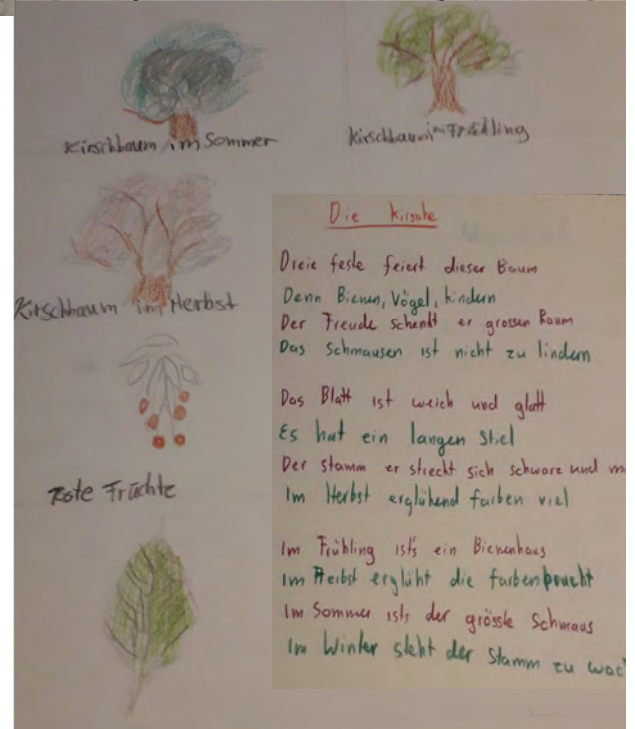 Kirschbaum im Sommer
Kirschbaum im Frühling
Kirschbaum im Herbst
Rote Früchte
Die Kirsche
Dreie feste feiert dieser Baum
Denn Bienen, Vögel, kindern
Der Freude schenkt er grossen Raum
Das Schmausen ist nicht zu lindern
Das Blatt ist weich und glatt
Es hat ein langen Stiel
Der stamm er streckt sich schwarz und
Im Herbst erglühend farben viel
Im Frühling ist's ein Bienenhaus
Im Herbst erglüht die farbenpracht
Im Sommer ist's der grösste Schmaus
Im Winter steht der Stamm zu